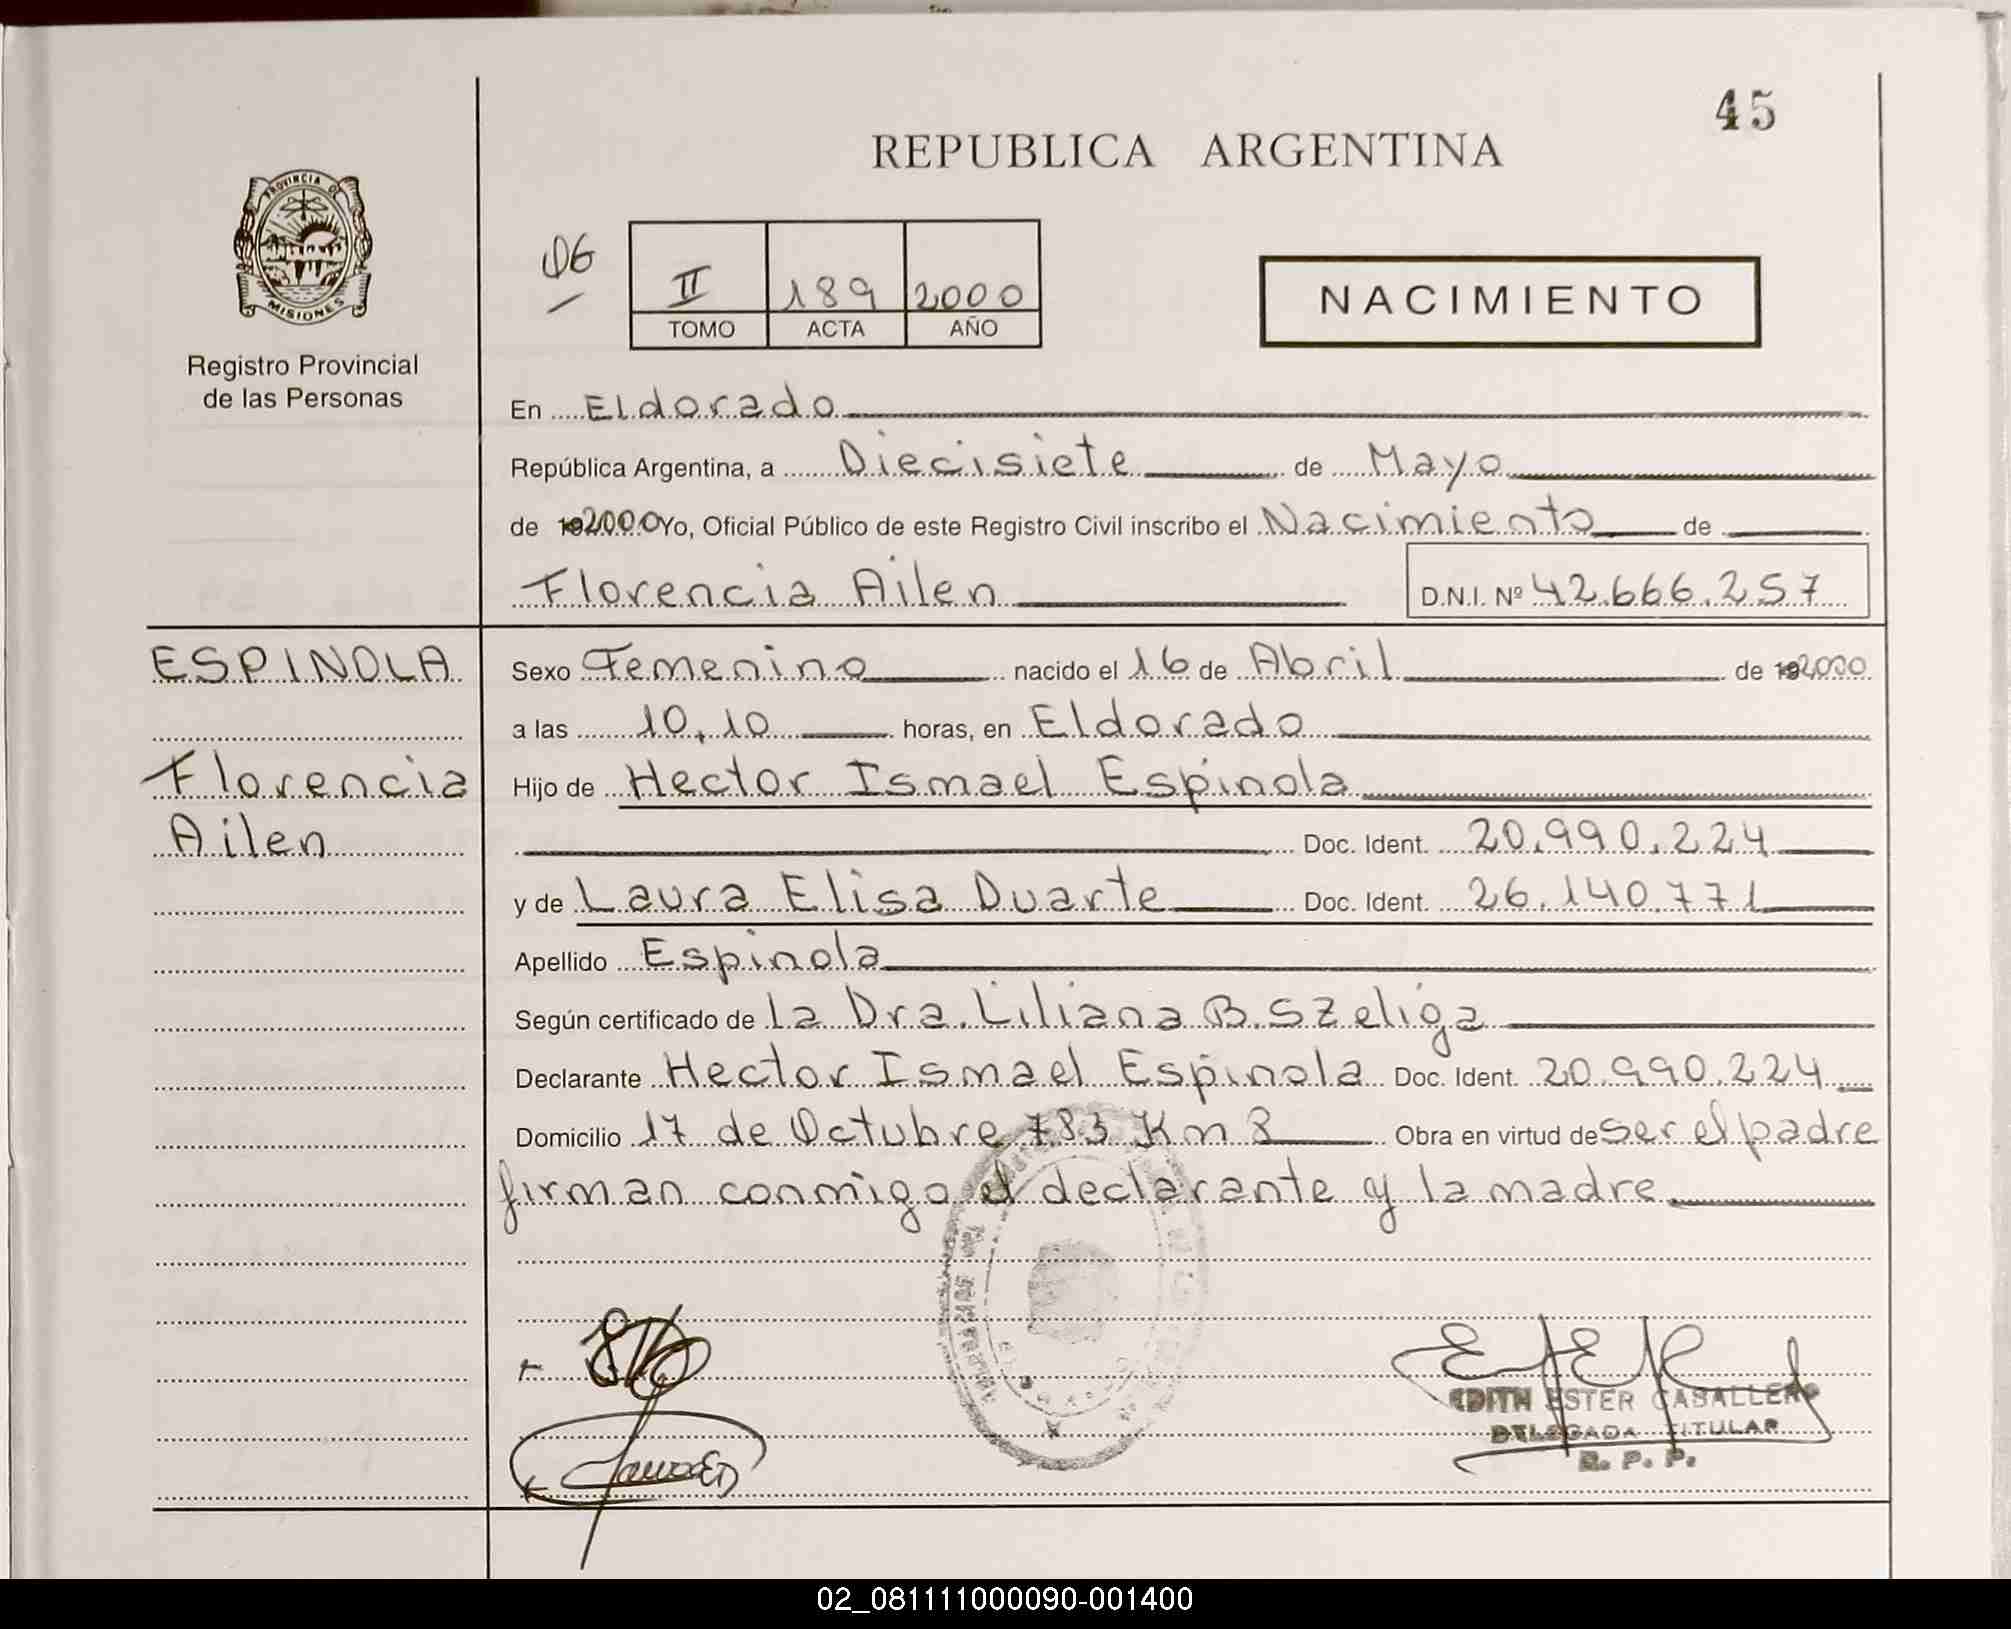 45
REPUBLICA ARGENTINA
PROVINCIA DE
MISIONES
Registro Provincial
de las Personas
06
II 189 2000
TOMO ACTA AÑO
NACIMIENTO
En Eldorado
República Argentina, a Diecisiete de Mayo
de 192000 Yo, Oficial Público de este Registro Civil inscribo el Nacimiento de
Florencia Ailen D.N.I. Nº 42.666.257
ESPINOLA
Florencia
Ailen
Sexo Femenino nacido el 16 de Abril de 192000
a las 10,10 horas, en Eldorado
Hijo de Hector Ismael Espinola
Doc. Ident. 20.990.224
y de Laura Elisa Duarte Doc. Ident. 26.140.771
Apellido Espinola
Según certificado de la Dra. Liliana B. Szeliga
Declarante Hector Ismael Espinola Doc. Ident. 20.990.224
Domicilio 17 de Octubre 783 Km 8 Obra en virtud de ser el padre
firman conmigo el declarante y la madre
EDITH ESTER CABALLERO
DELEGADA TITULAR
R. P. P.
02_081111000090-001400